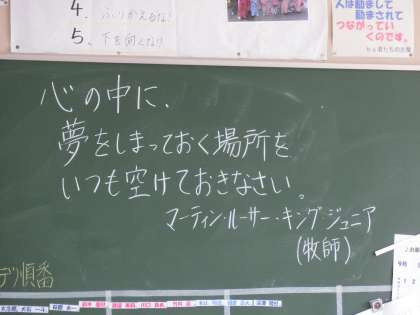 4. ふりかえるな!
5. 下を向くな!!
人は励まして
励まされて
つながってい
くのです。
心の中に、
夢をしまっておく場所を
いつも空けておきなさい。
マーティン・ルーサー・キング・ジュニア
(牧師)
順番